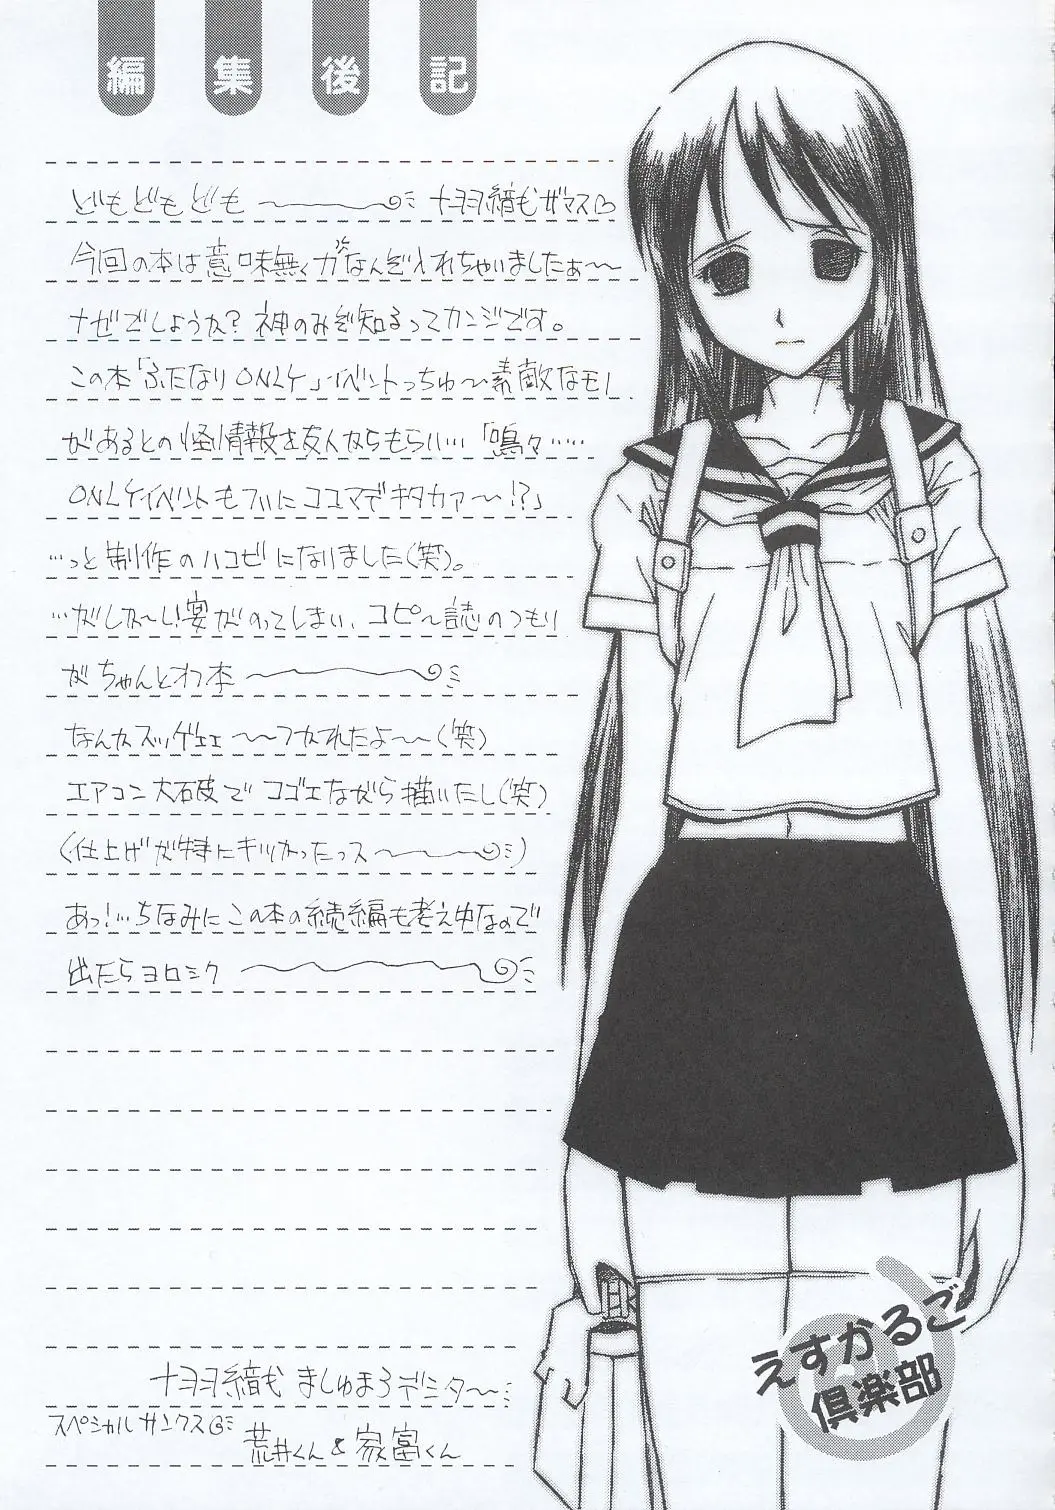 編集後記
どもどもども
今回の本は意味無くガなんぞ入れちゃいましたぁ〜〜
ナゼでしょうか? 神のみぞ知るってカンジです。
この本「ふたなりONLY」イベントっちゅ〜素敵なモノ
があるとの怪情報を友人からもらい…「嗚々……
ONLYイベントもついにココマデキタカァ〜!?」
…っと制作のハコビになりました(笑)。
…がしか〜し!宴がのってしまい、コピ〜誌のつもり
がちゃんとオフ本
なんかスッゲェェ〜〜つかれたよ〜〜(笑)
エアコン大石破でコゴエながら描いたし(笑)
(仕上げが特にキツかったっス〜)
あっ!…ちなみにこの本の続編も考え中なので
出たらヨロシク
ましゅまろデニタ〜
スペシャルサンクス
荒井くん & 家富くん
えすかるご
倶楽部